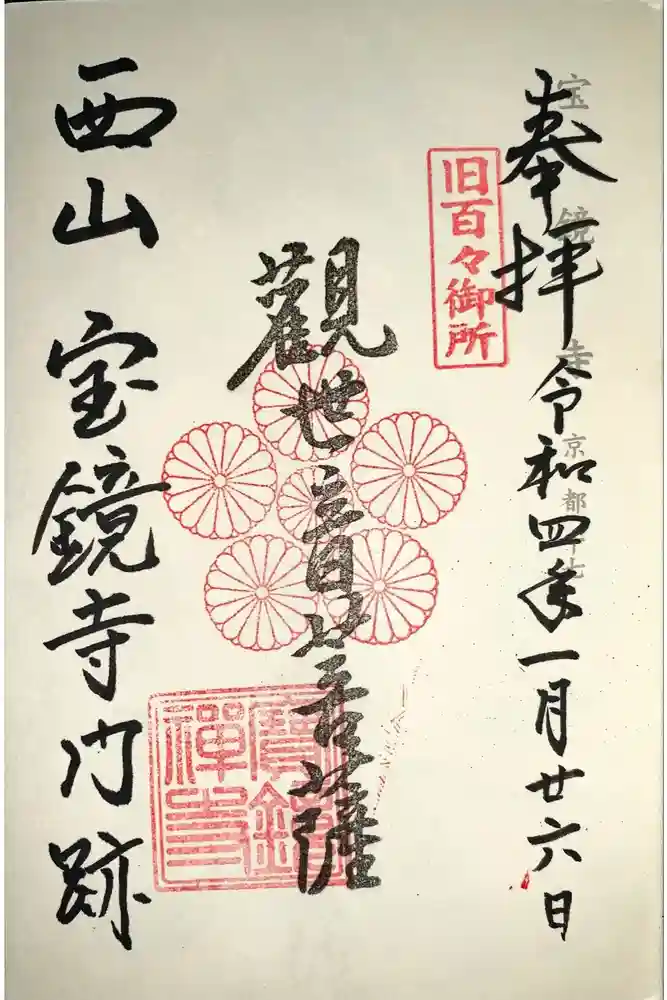 奉拝
令和四年一月廿六日
旧百々御所
觀世音菩薩
寶鏡禅寺
西山 宝鏡寺門跡
宝鏡寺
京都